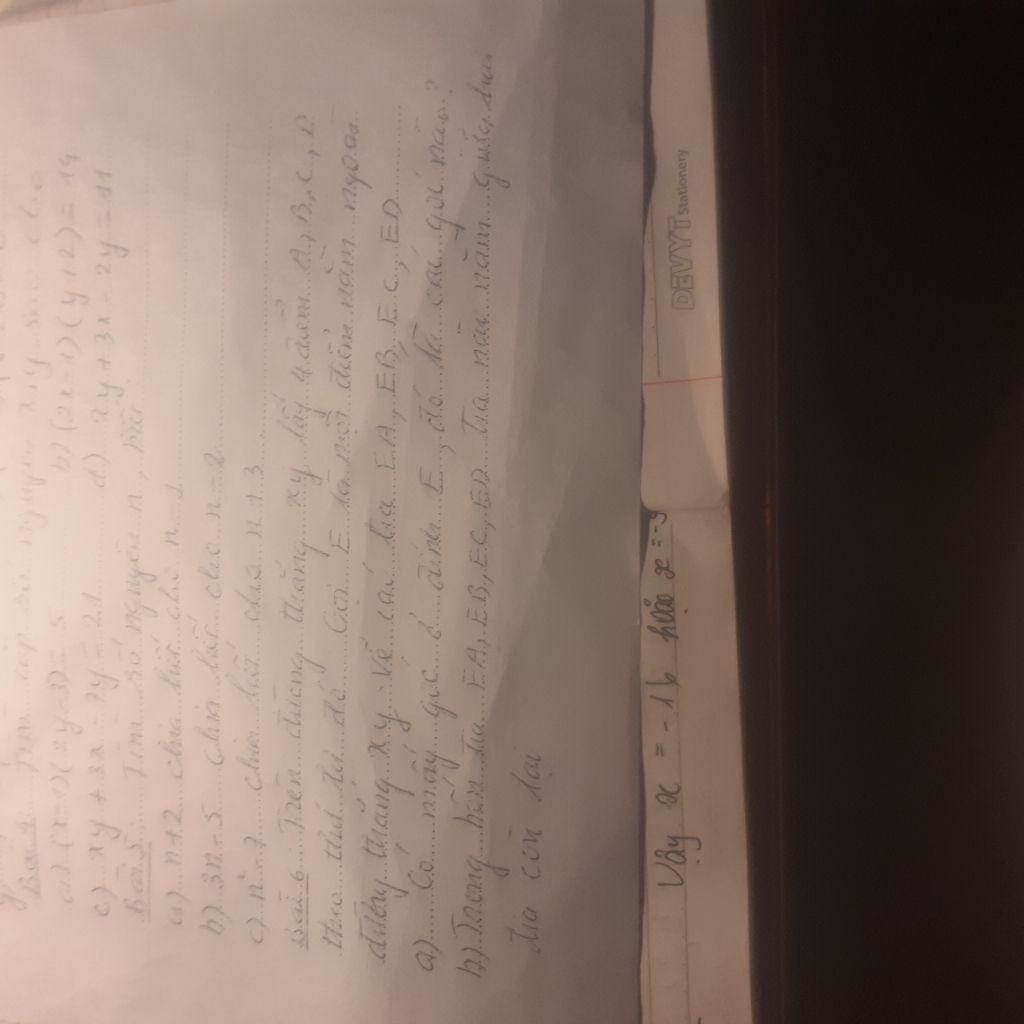 Bài 4 Tìm cặp số nguyên x, y sao cho
a) (x-1)(xy-3)=5 b) (2x-1)(y+2)=14
c) xy+3x-7y=21 d) xy+3x-2y=11
Bài 5 Tìm số nguyên n, biết
a) n+2 chia hết cho n-1
b) 3n-5 chia hết cho n-2
c) n²-7 chia hết cho n+3
Bài 6 Trên đường thẳng xy lấy 4 điểm A, B, C, D
theo thứ tự đó Gọi E là một điểm nằm ngoài
đường thẳng xy. Vẽ các tia EA, EB, EC, ED
a) Có mấy góc ở đỉnh E, đó là các góc nào?
b) Trong bốn tia EA, EB, EC, ED Tia nào nằm giữa hai
tia còn lại
DEVYT Stationery
Vậy x = -16 hoặc x =